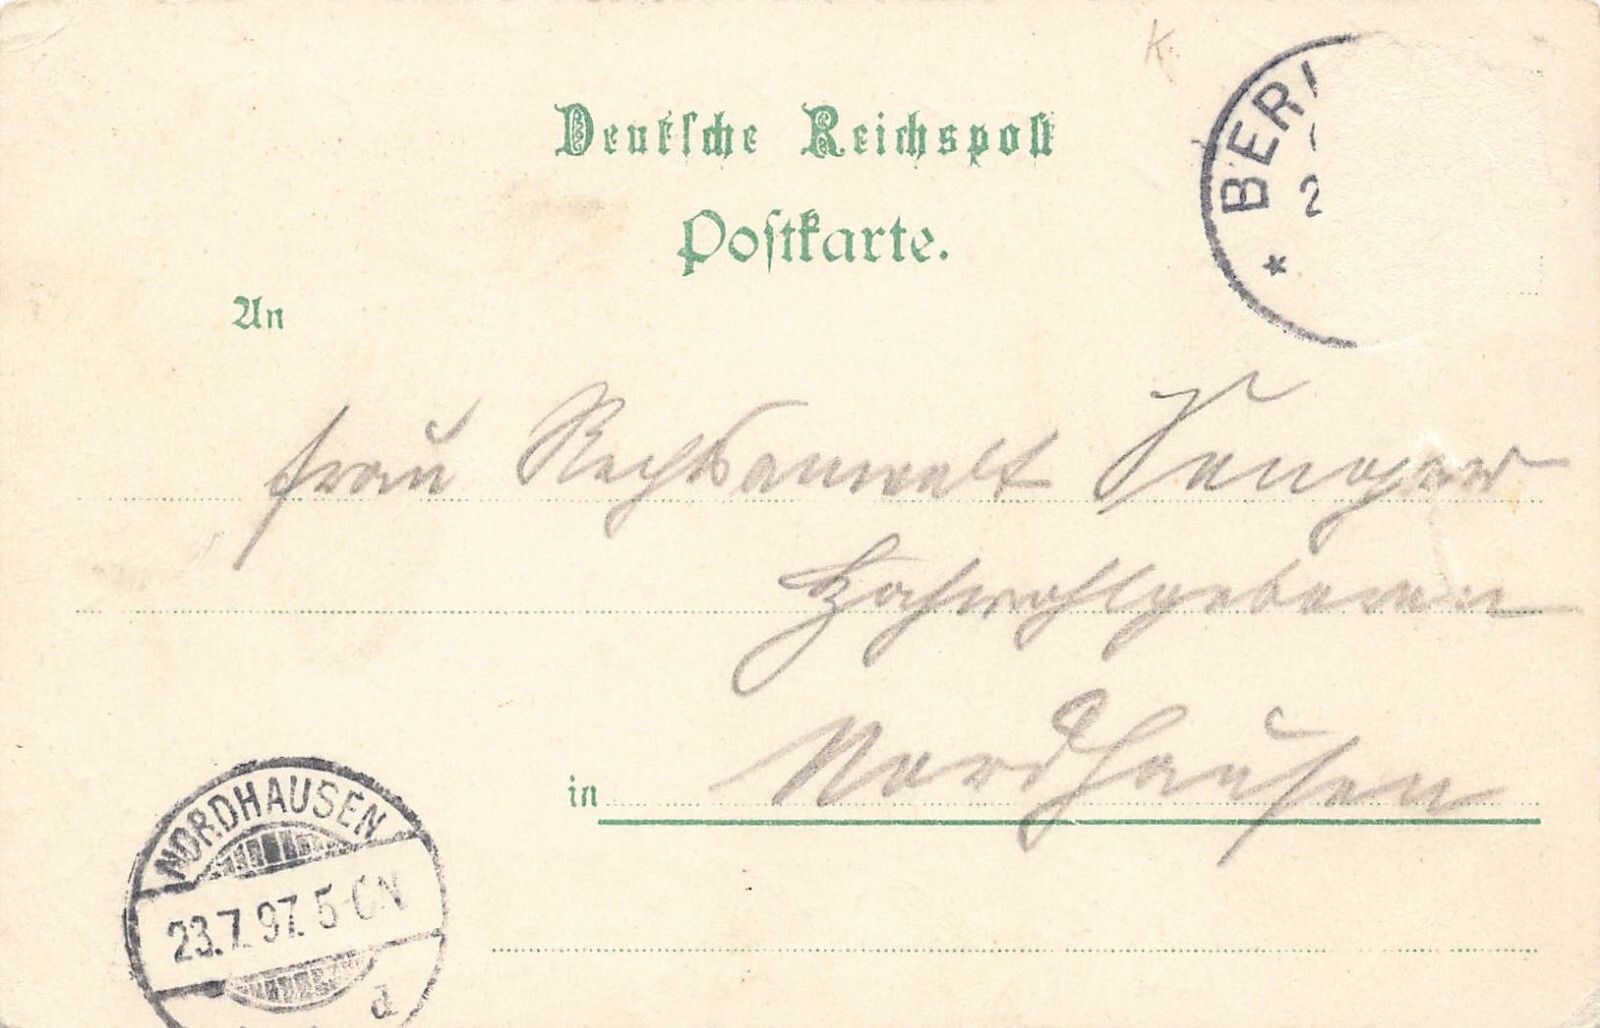 K
Deutsche Reichspost
Postkarte.
BER
2
An
Frau Rechtsanwalt
Hochwohlgeboren
in Nordhausen
NORDHAUSEN
23.7.97. 5-6N
d